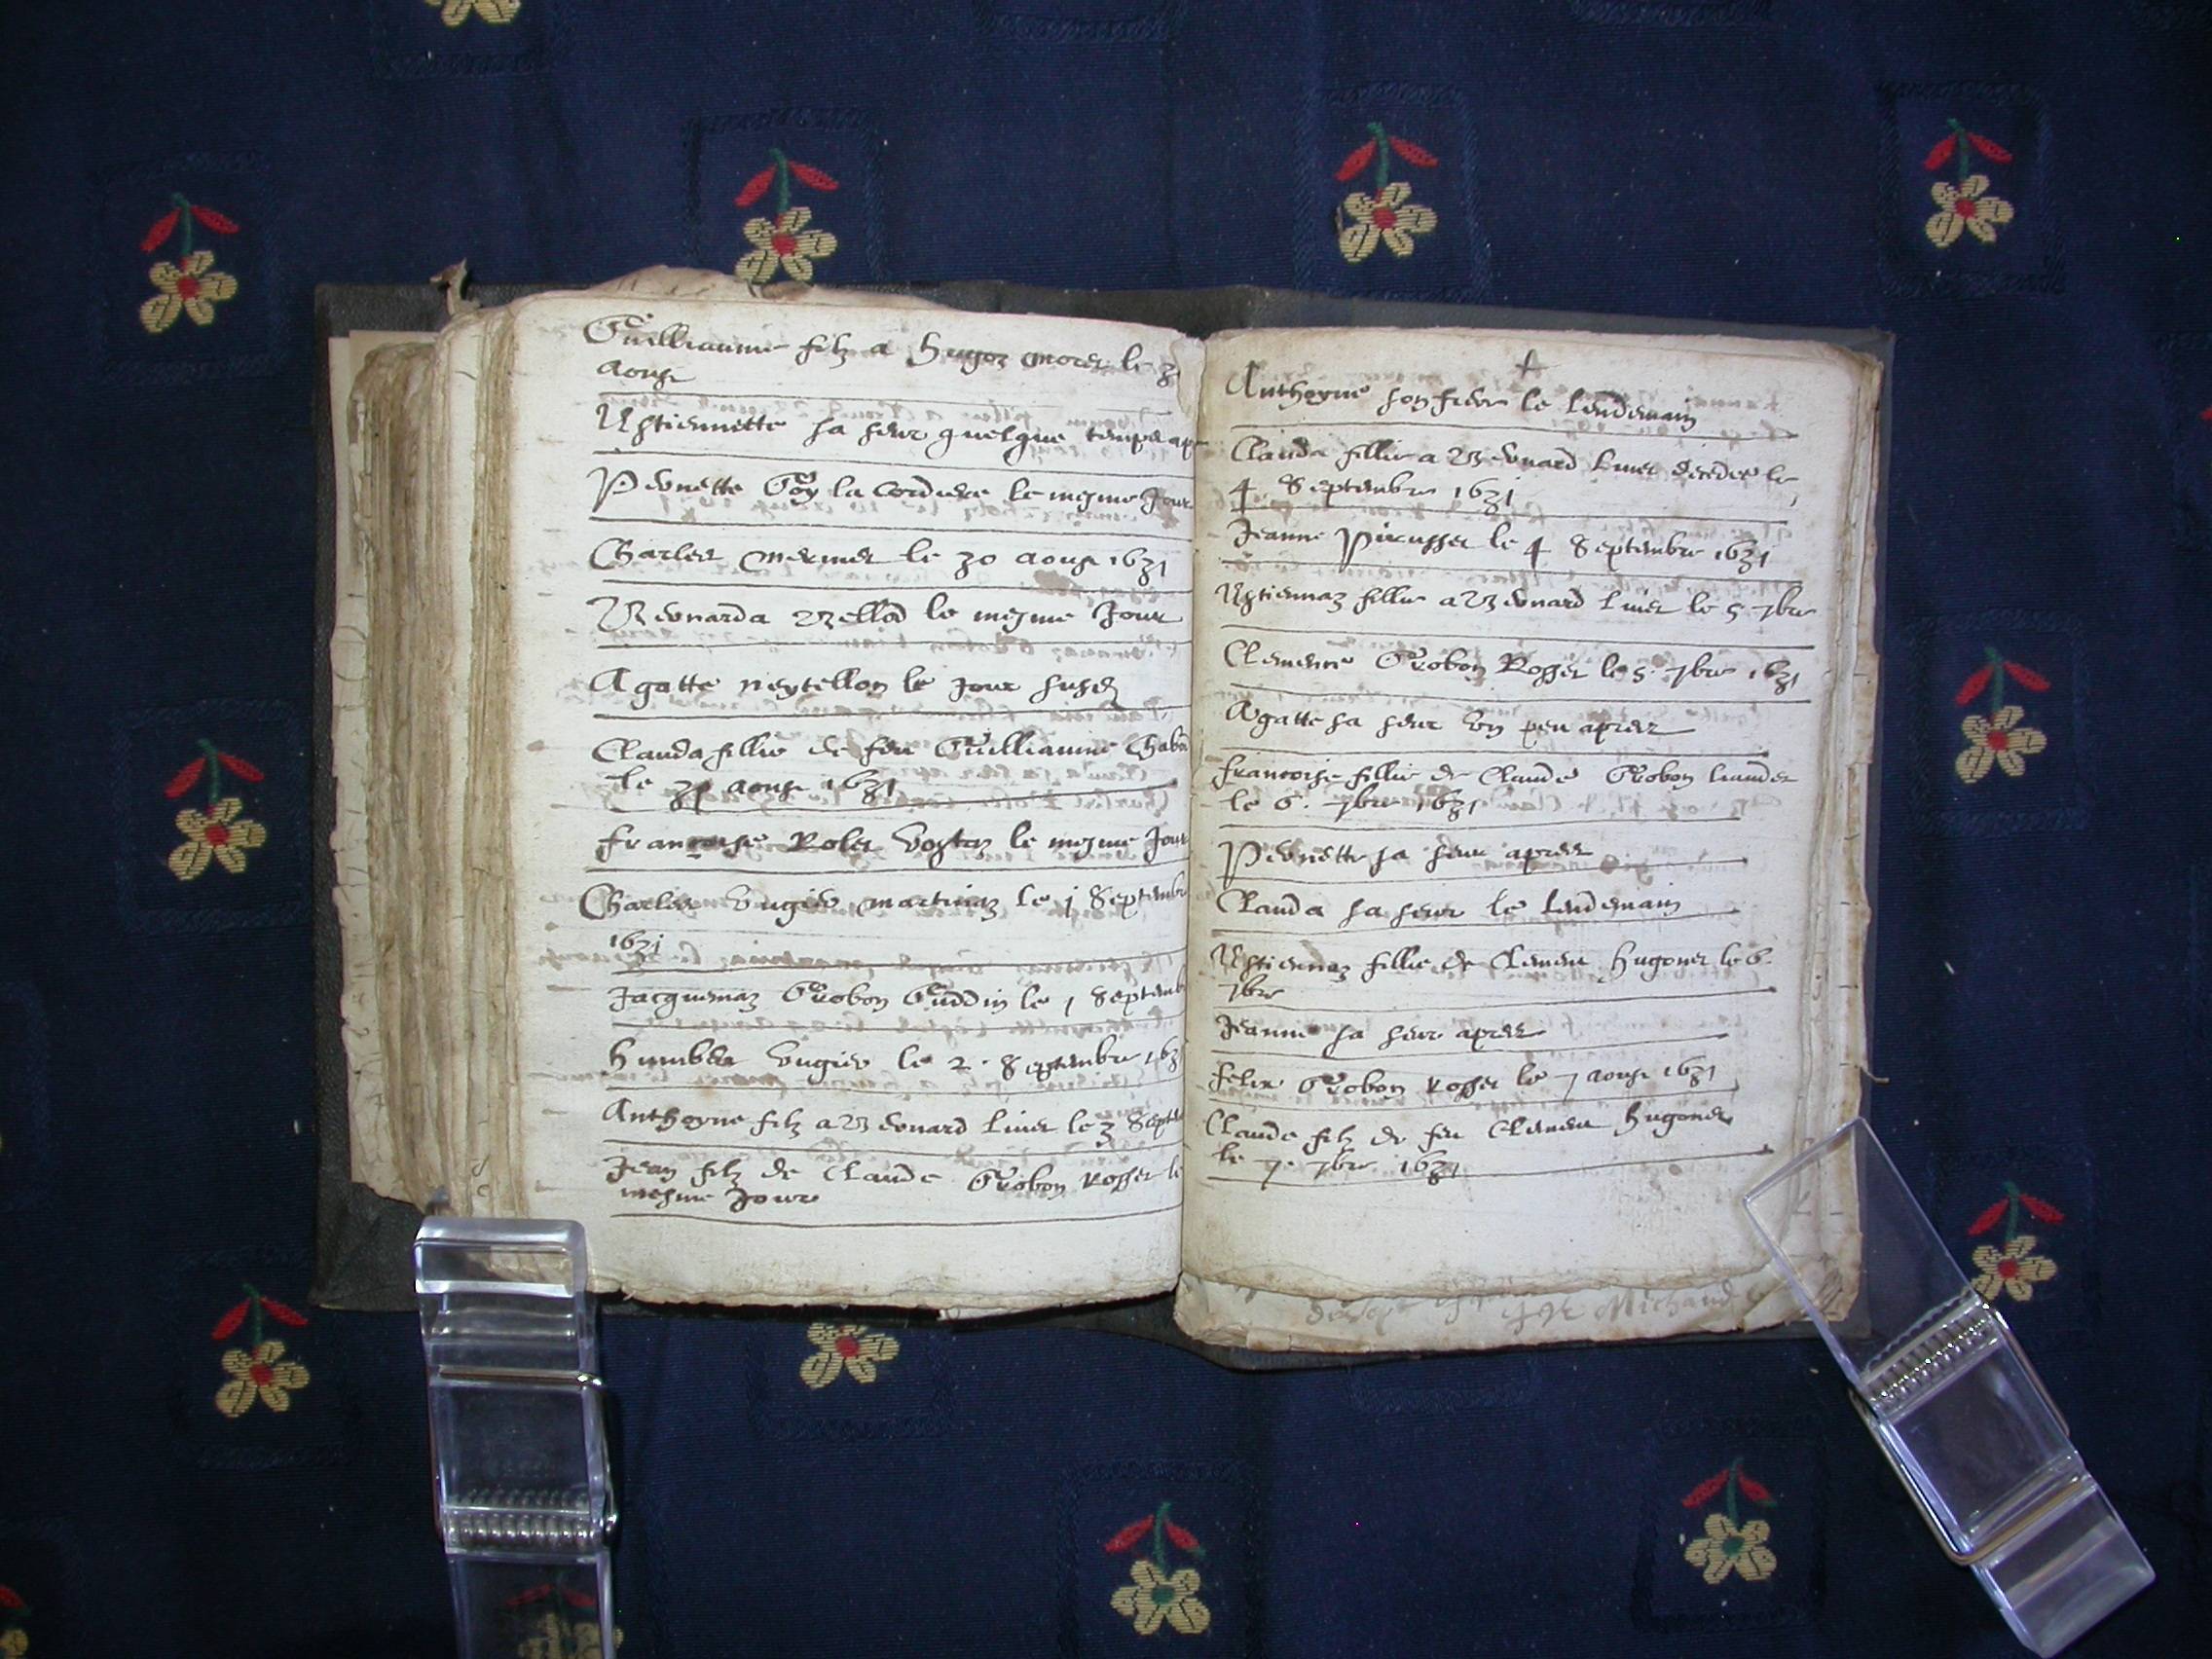 Guilliaume filz a Hugoz Moret le 31
aoust
Estiennette sa seur quelque temps apr
Pernette Goy la cordiere le mesme Jour
Charles Mermet le 30 aoust 1631
Bernarda le mesme Jour
Agatte Neytellon le Jour susd
Clauda fillie de feu Guilliaume Chab
le 31 aoust 1631
Francoise Rolet le mesme Jour
Charles Vugier Martinaz le 1 Septembre
1631
Jacquemaz Grobon Guddin le 1 Septemb
Humbert Vugier le 2. Septembre 1631
Anthoyne filz a Bernard Livet le 3 Septe
Jean filz de Claude Grobon Rosset le
mesme Jour
+
Anthoyne son frere le lendemain
Clauda fillie a Bernard Livet decedee le
4. Septembre 1631
Jeanne Picusset le 4 Septembre 1631
Estiennaz fillie a Bernard Livet le 5 7bre
Clemence Grobon Rosset le 5. 7bre 1631
Agatte sa seur un peu apres
Francoise fillie de Claude Grobon
le 6. 7bre 1631
Pernette sa seur apres
Clauda sa seur le lendemain
Estiennaz fillie de Clement Hugonet le 6.
7bre
Jeanne sa seur apres
Felix Grobon Rosset le 7 aoust 1631
Claude filz de feu Clement Hugonet
le 7. 7bre 1631
Michaud